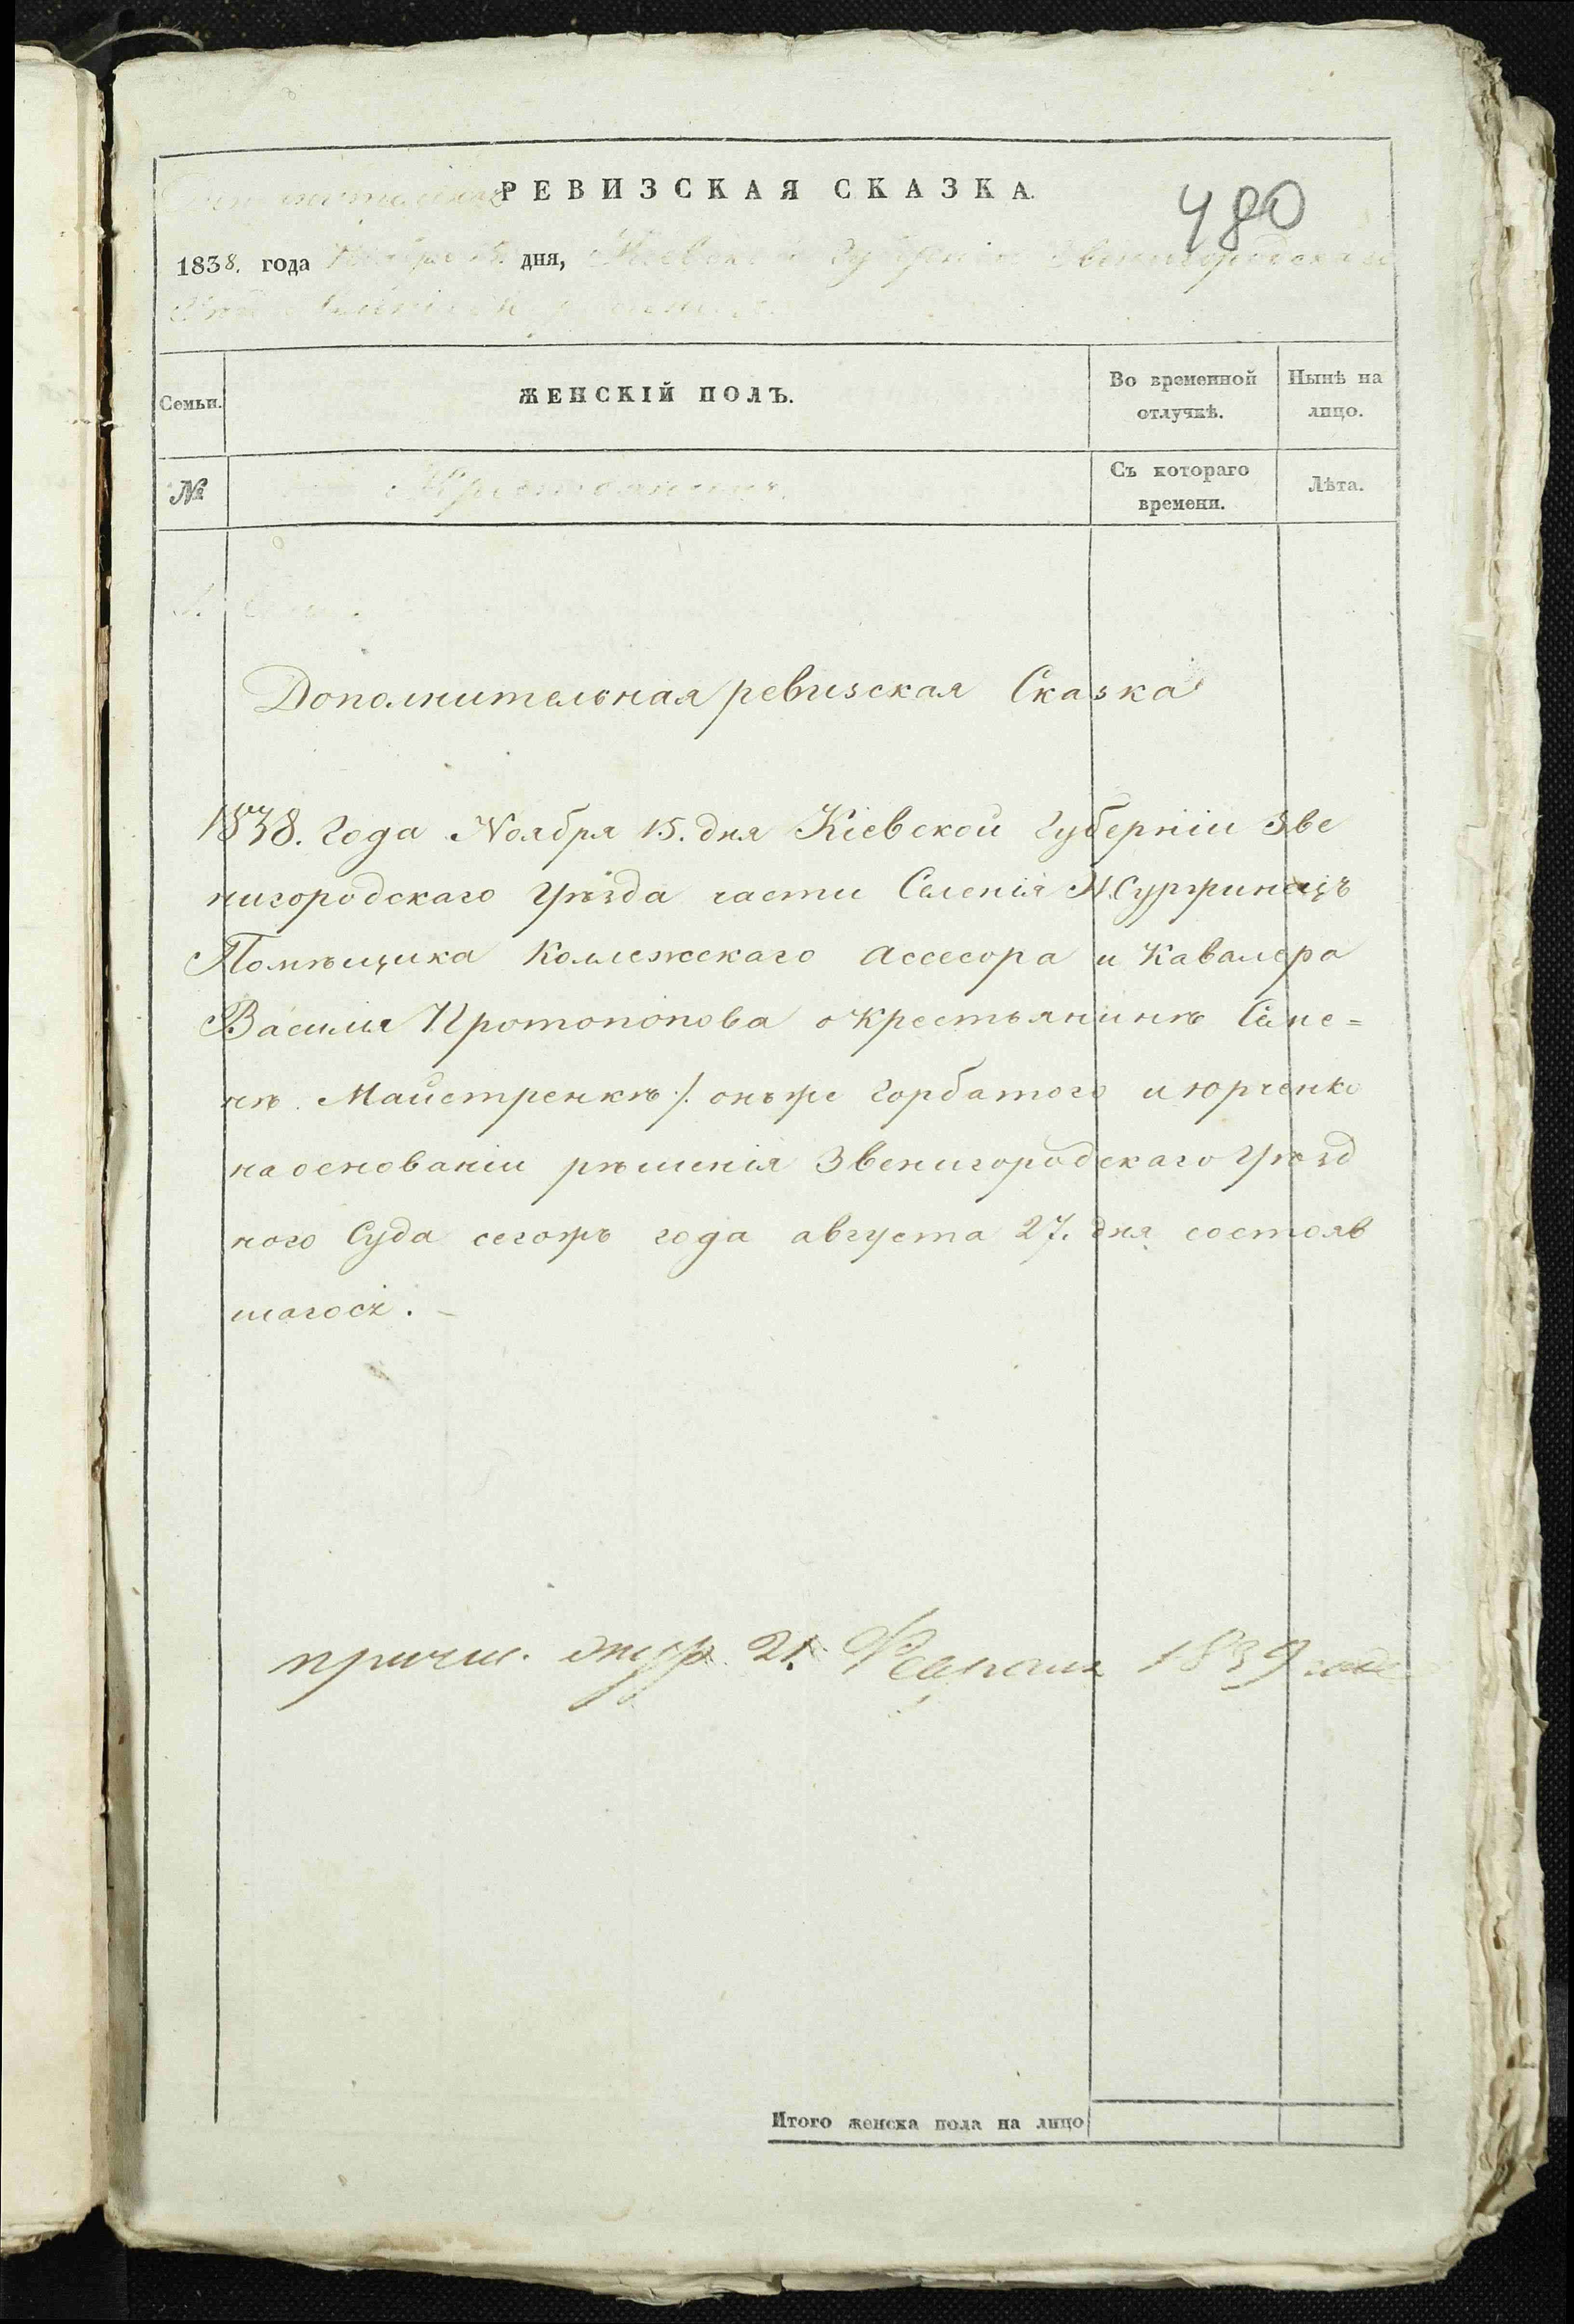 РЕВИЗСКАЯ СКАЗКА.
480
1838. года дня, Кіевской Губерніи Звенигородскаго
Семьи.
ЖЕНСКІЙ ПОЛЪ.
Во временной отлучкѣ.
Нынѣ на лицо.
№
Съ котораго времени.
Лѣта.
Дополнительная ревизская Сказка
1838. Года Ноября 15. дня Кіевской Губерніи Зве
нигородскаго Уѣзда части Селенія
Помѣщика Коллежскаго Ассесора и Кавалера
Василія Протопопова о Крестьянинѣ
Майстренкѣ /. онъже Горбатого и Юрченко
на основаніи рѣшенія Звенигородскаго Уѣзд
ного Суда сегожъ года августа 27. дня состояв
шагося. –
21. 1839 года
Итого женска пола на лицо